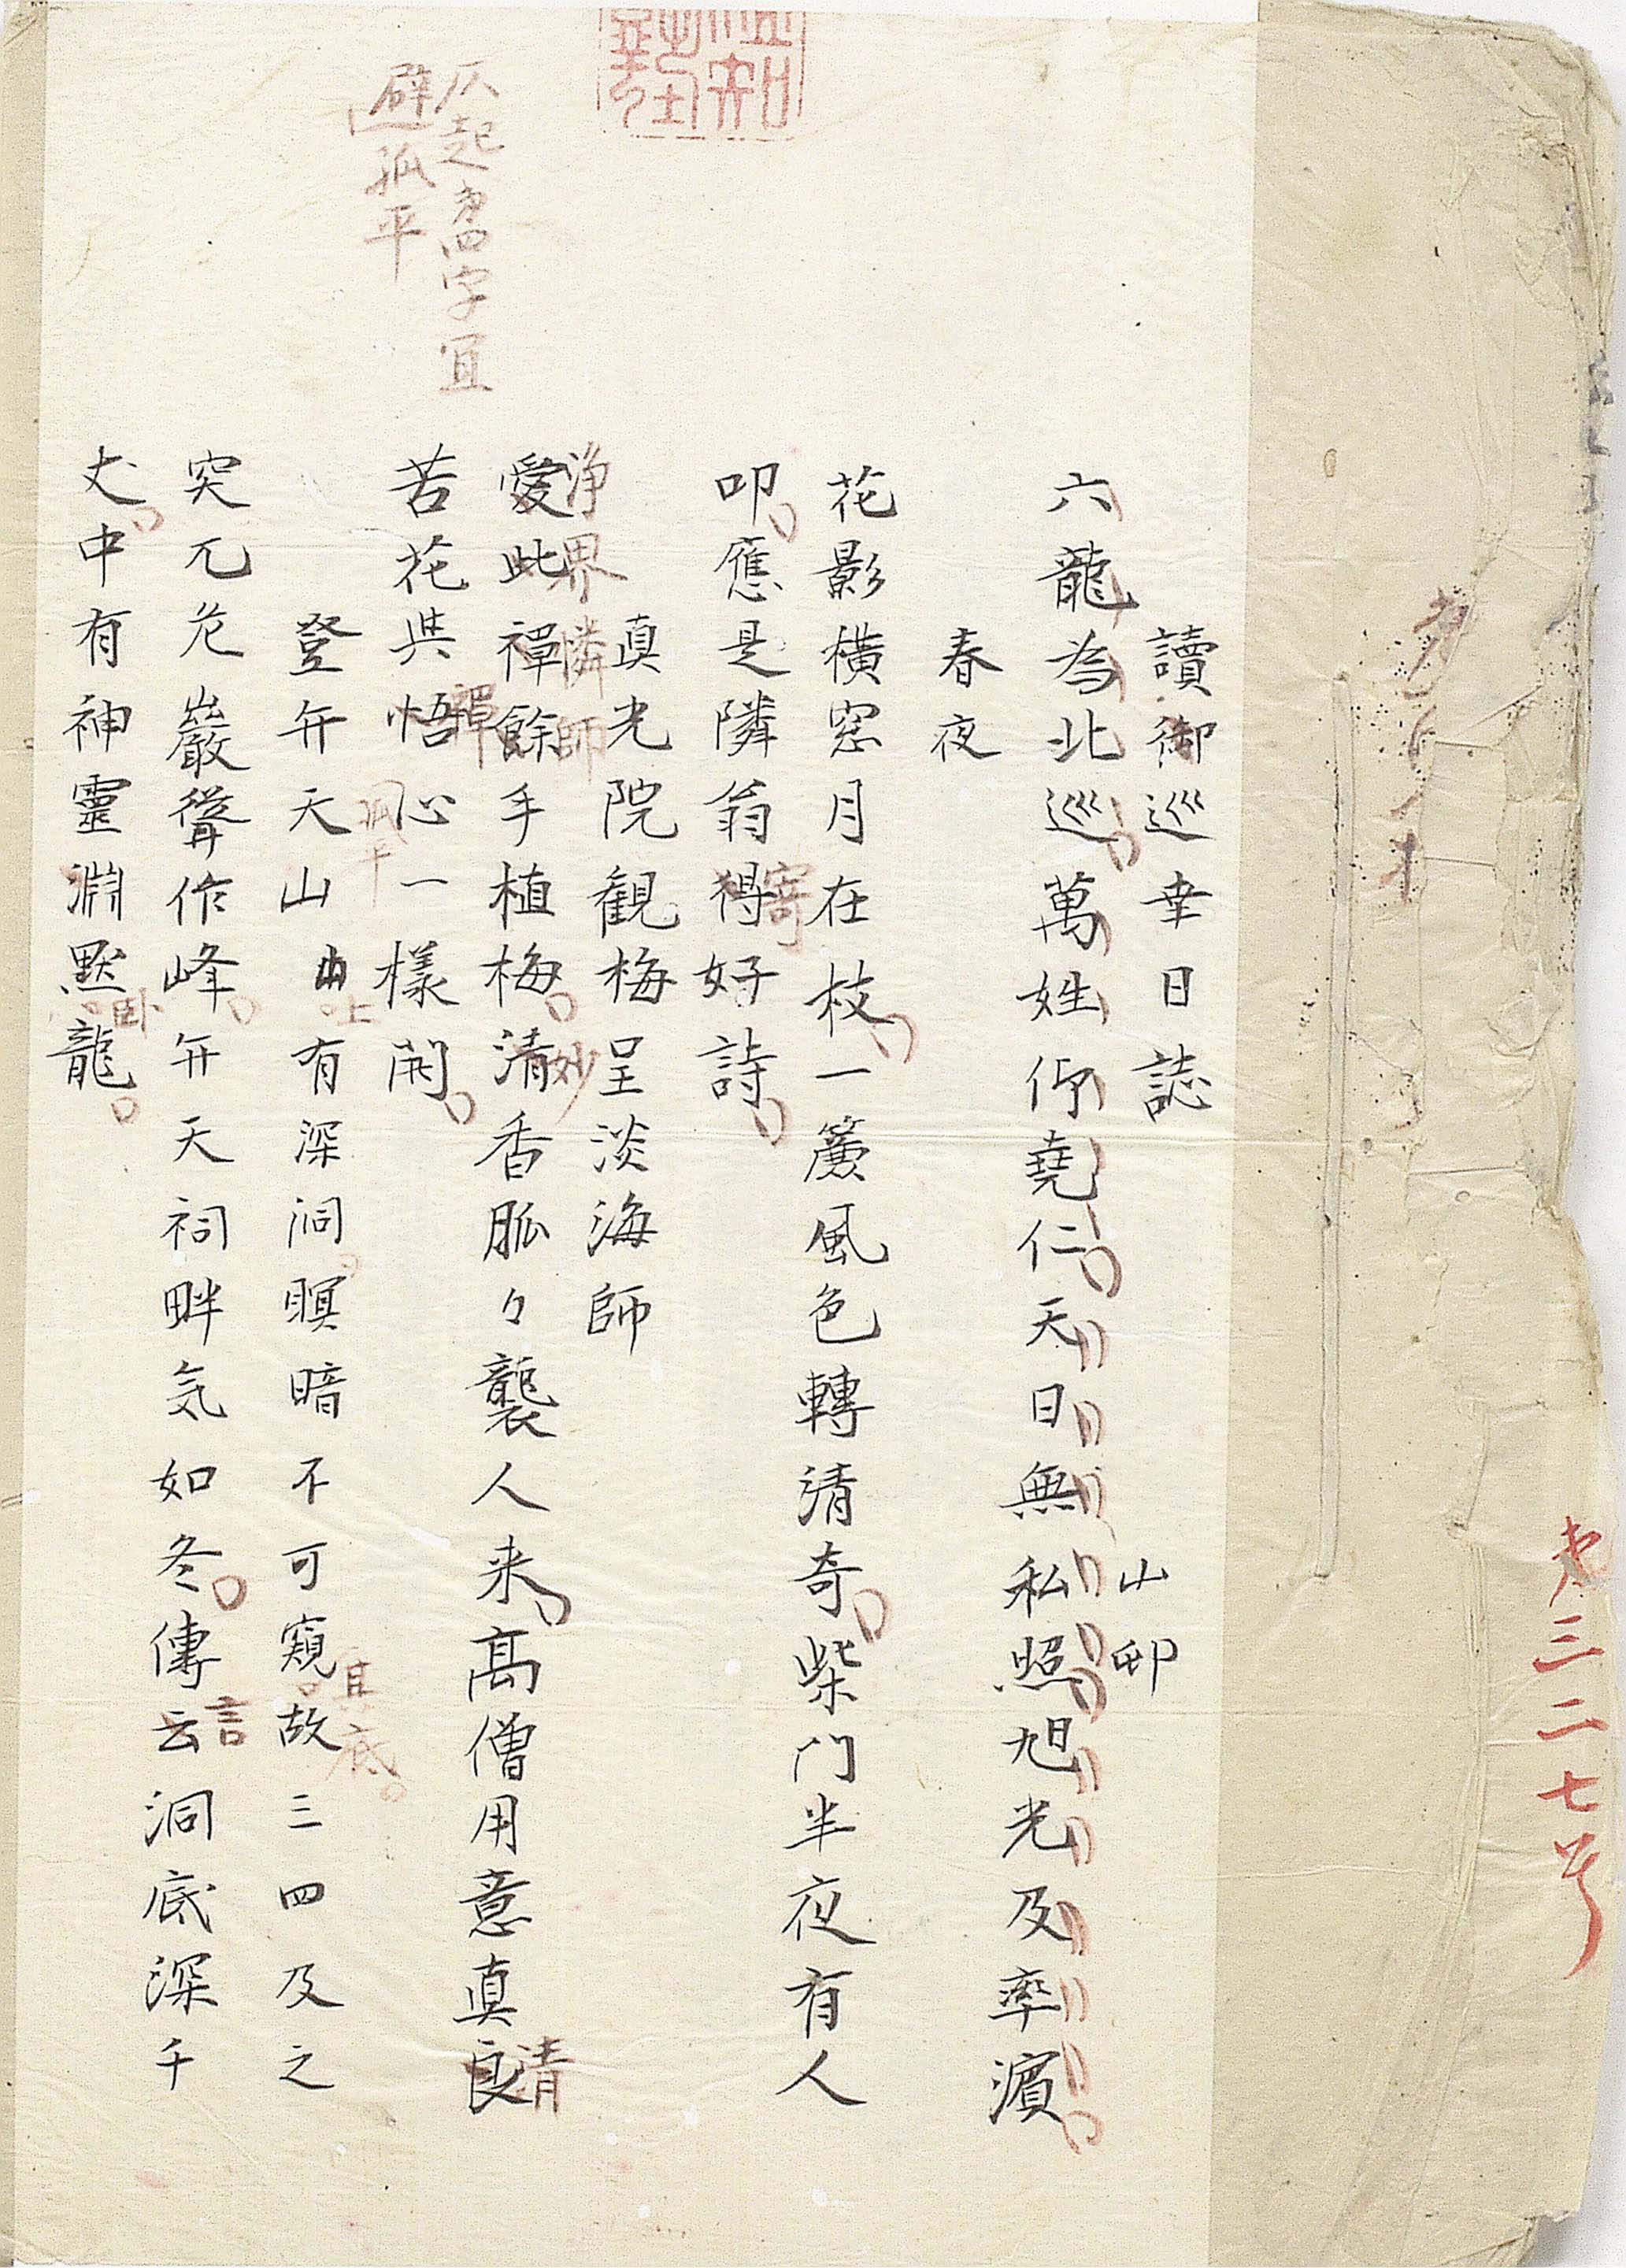 第三二七号
讀御巡幸日誌
山邨
六龍為北巡萬姓仰堯仁天日無私照旭光及率濱
春夜
花影橫窓月在枝一簾風色轉清奇柴門半夜有人
叩應是隣翁得好詩
寄
真光院観梅呈淡海師
浄界憐師
妙
愛此禪餘手植梅清香脈々襲人来高僧用意真良
清
仄起第四字宜
避孤平
苦花與悟心一樣開
禪
孤平
登弁天山山有深洞瞑暗不可窺故三四及之
上
其底
突兀危巖聳作峰弁天祠畔気如冬傳云洞底深千
言
丈中有神靈淵黙龍
臥